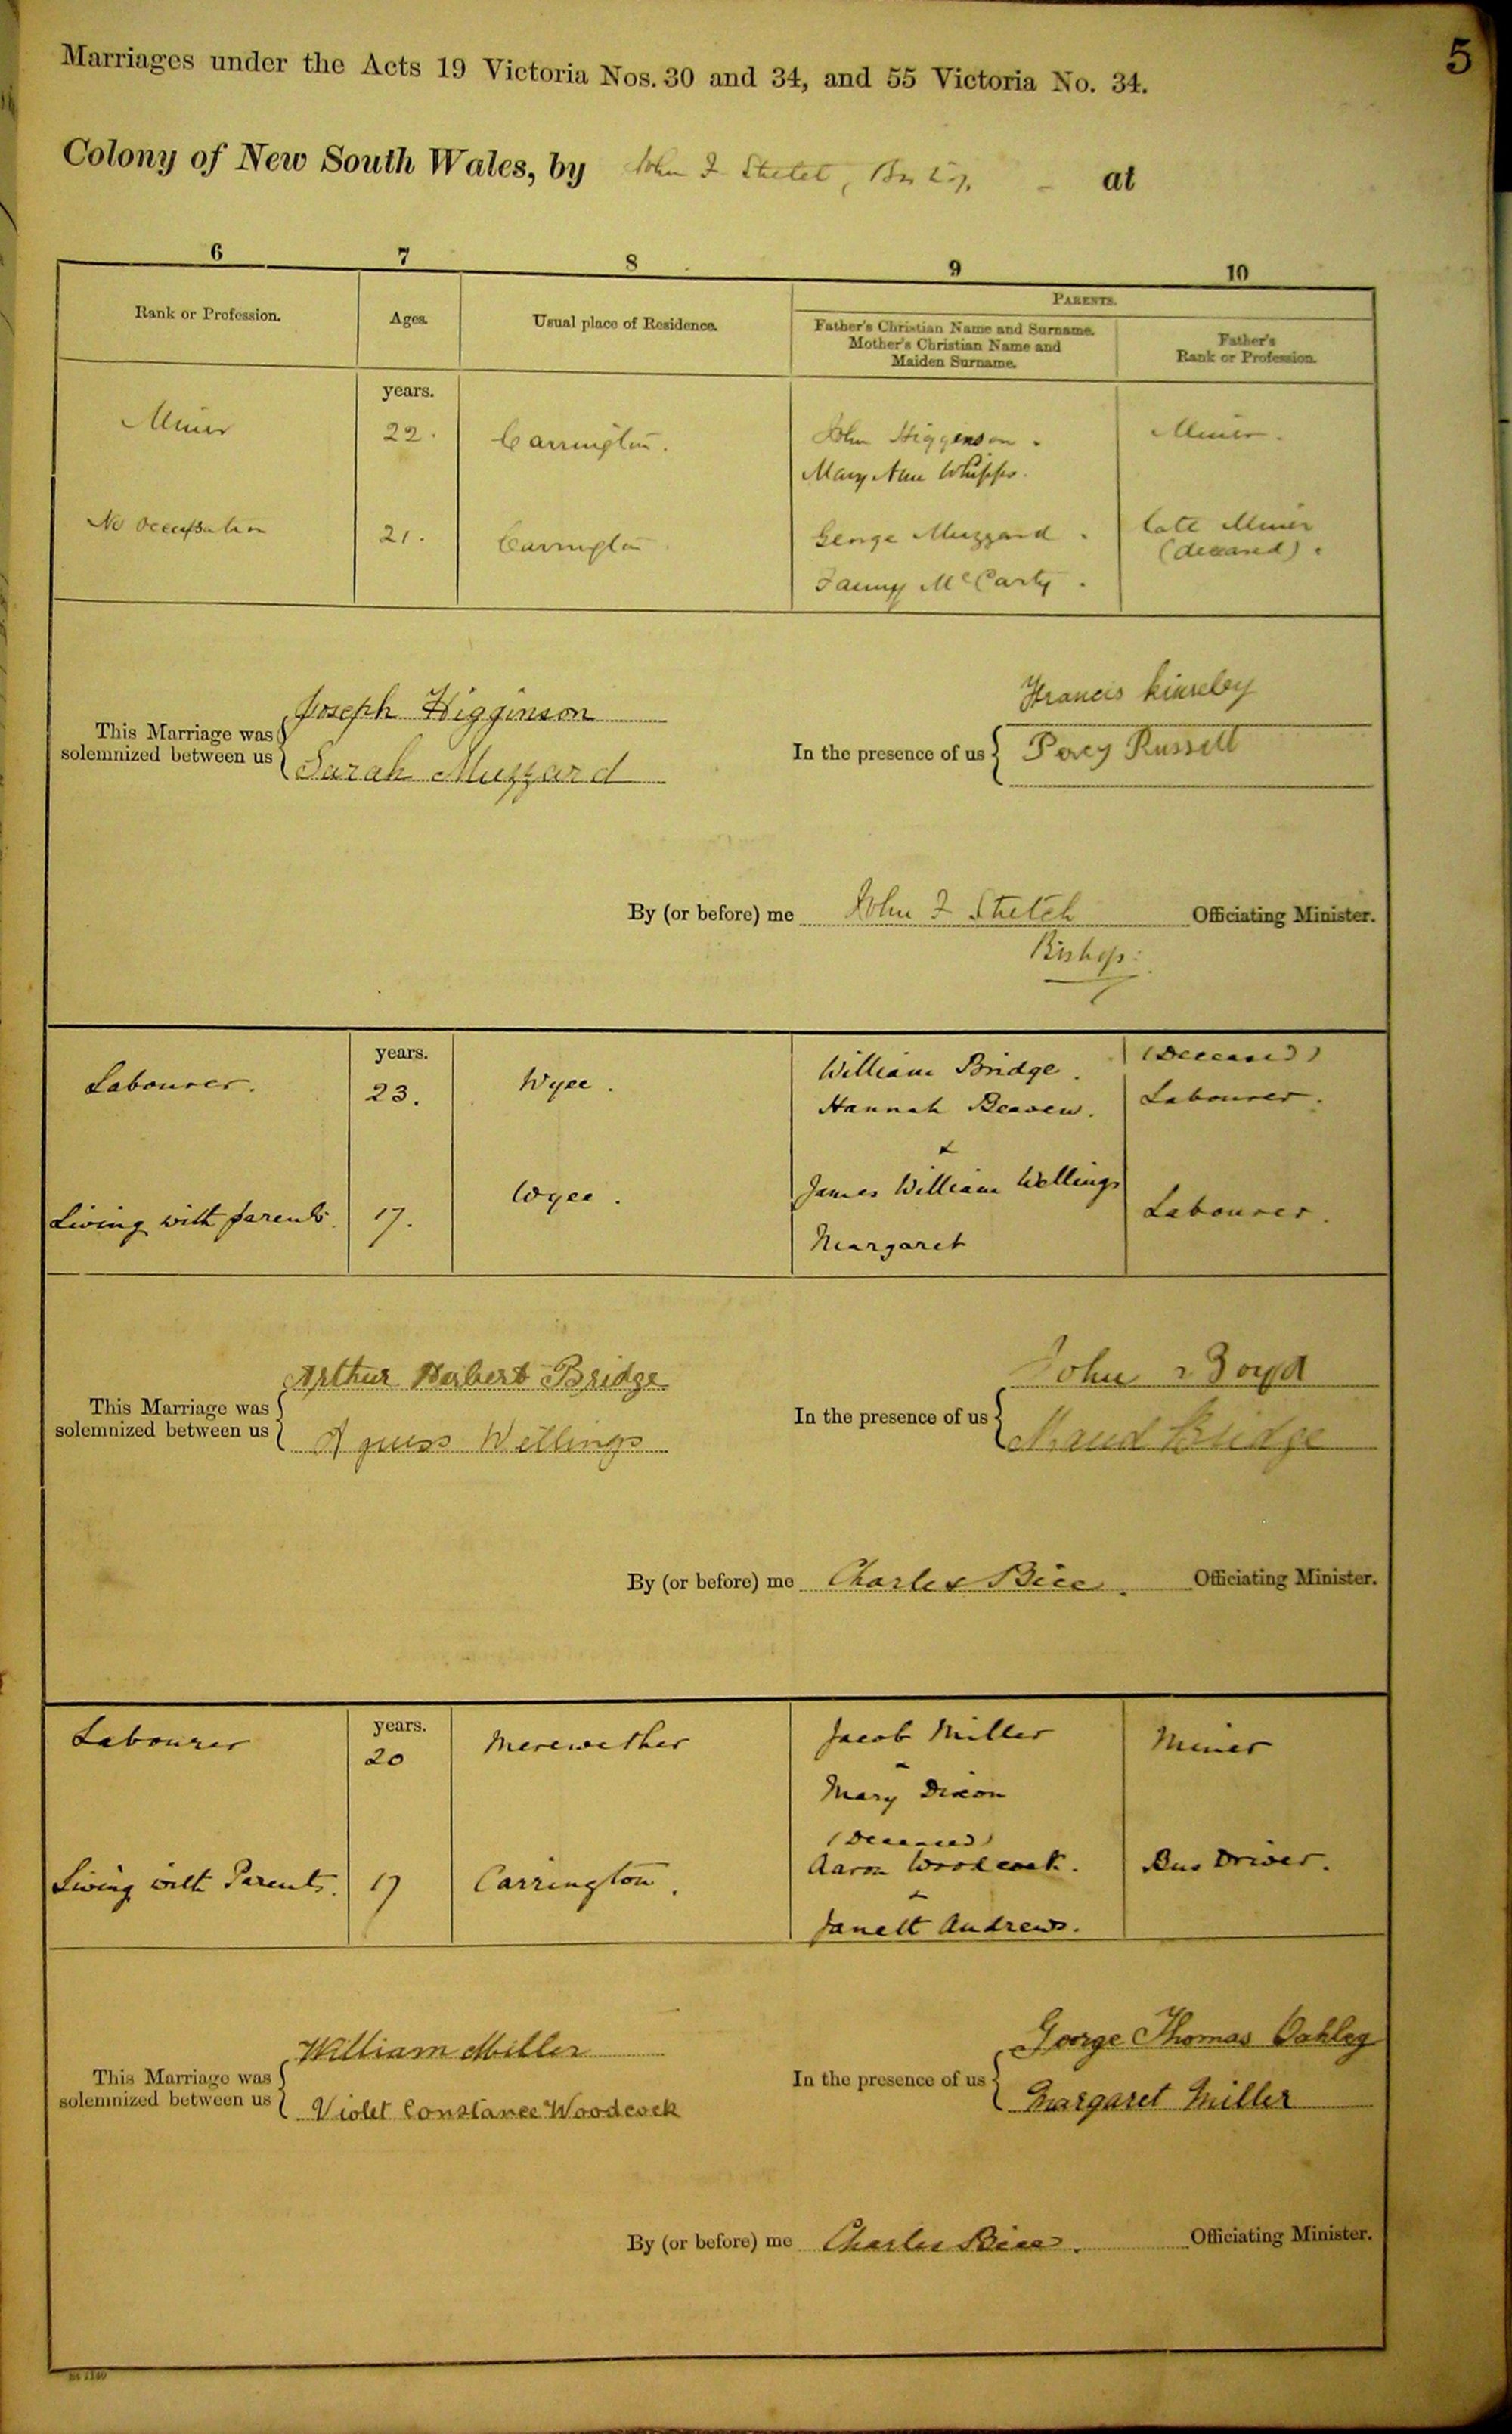 Marriages under the Acts 19 Victoria Nos. 30 and 34, and 55 Victoria No. 34.
5
Colony of New South Wales, by John F Stretch, at
6 7 8 9 10
Rank or Profession. Ages. Usual place of Residence. PARENTS.
Father's Christian Name and Surname.
Mother's Christian Name and
Maiden Surname.
Father's
Rank or Profession.
years.
Miner 22. Carrington. John Higgenson. Miner.
Mary Ann Whipps.
No occupation 21. Carrington George Muzzard. late Miner
(deceased).
Fanny McCarty.
This Marriage was
solemnized between us
Joseph Higginson
Sarah Muzzard
In the presence of us
Francis Kinseley
Percy Russell
By (or before) me John F Stretch Officiating Minister.
Bishop.
years.
Labourer. 23. Wyee. William Bridge. (Deceased)
Hannah Beaven. Labourer.
&
Living with parents. 17. Wyee. James William Wellings Labourer.
Margaret
This Marriage was
solemnized between us
Arthur Herbert Bridge
Agness Wellings
In the presence of us
John Boyd
Maud Bridge
By (or before) me Charles Bice. Officiating Minister.
years.
Labourer 20 Merewether Jacob Miller Miner
Mary Dixon
(Deceased)
Living with Parents. 17 Carrington. Aaron Woodcock. Bus Driver.
Janett Andrews.
This Marriage was
solemnized between us
William Miller
Violet Constance Woodcock
In the presence of us
George Thomas Oakley
Margaret Miller
By (or before) me Charles Bice. Officiating Minister.